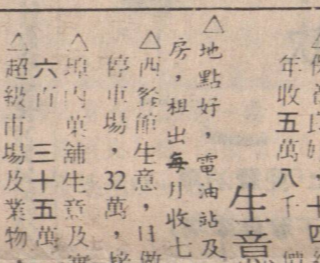 良好，十四
年收五萬八千
生意
△地點好，電油站及
房，租出每月收七
△西餐館生意，日做
停車場，32萬，
△埠內菓舖生意及
六百 三十五萬
△超級市場及業物